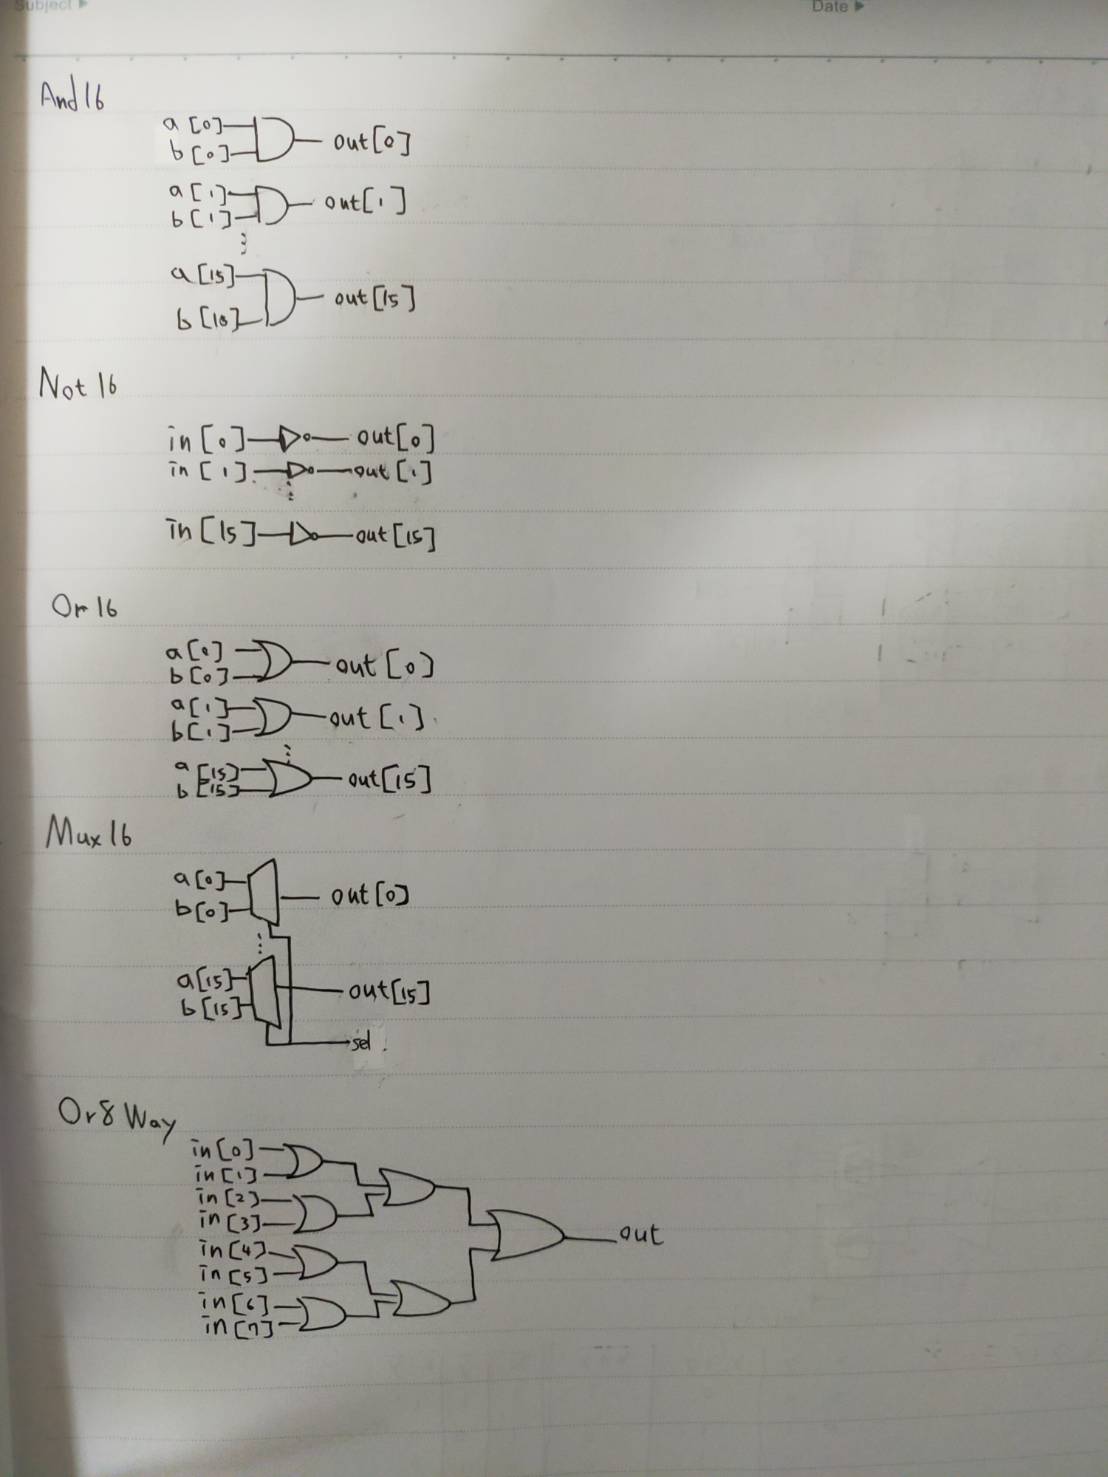 Subject
Date
And 16
a[0]
b[0]
out[0]
a[1]
b[1]
out[1]
a[15]
b[15]
out[15]
Not 16
in[0]
out[0]
in[1]
out[1]
in[15]
out[15]
Or 16
a[0]
b[0]
out[0]
a[1]
b[1]
out[1]
a[15]
b[15]
out[15]
Mux 16
a[0]
b[0]
out[0]
a[15]
b[15]
out[15]
sel
Or8 Way
in[0]
in[1]
in[2]
in[3]
in[4]
in[5]
in[6]
in[7]
out